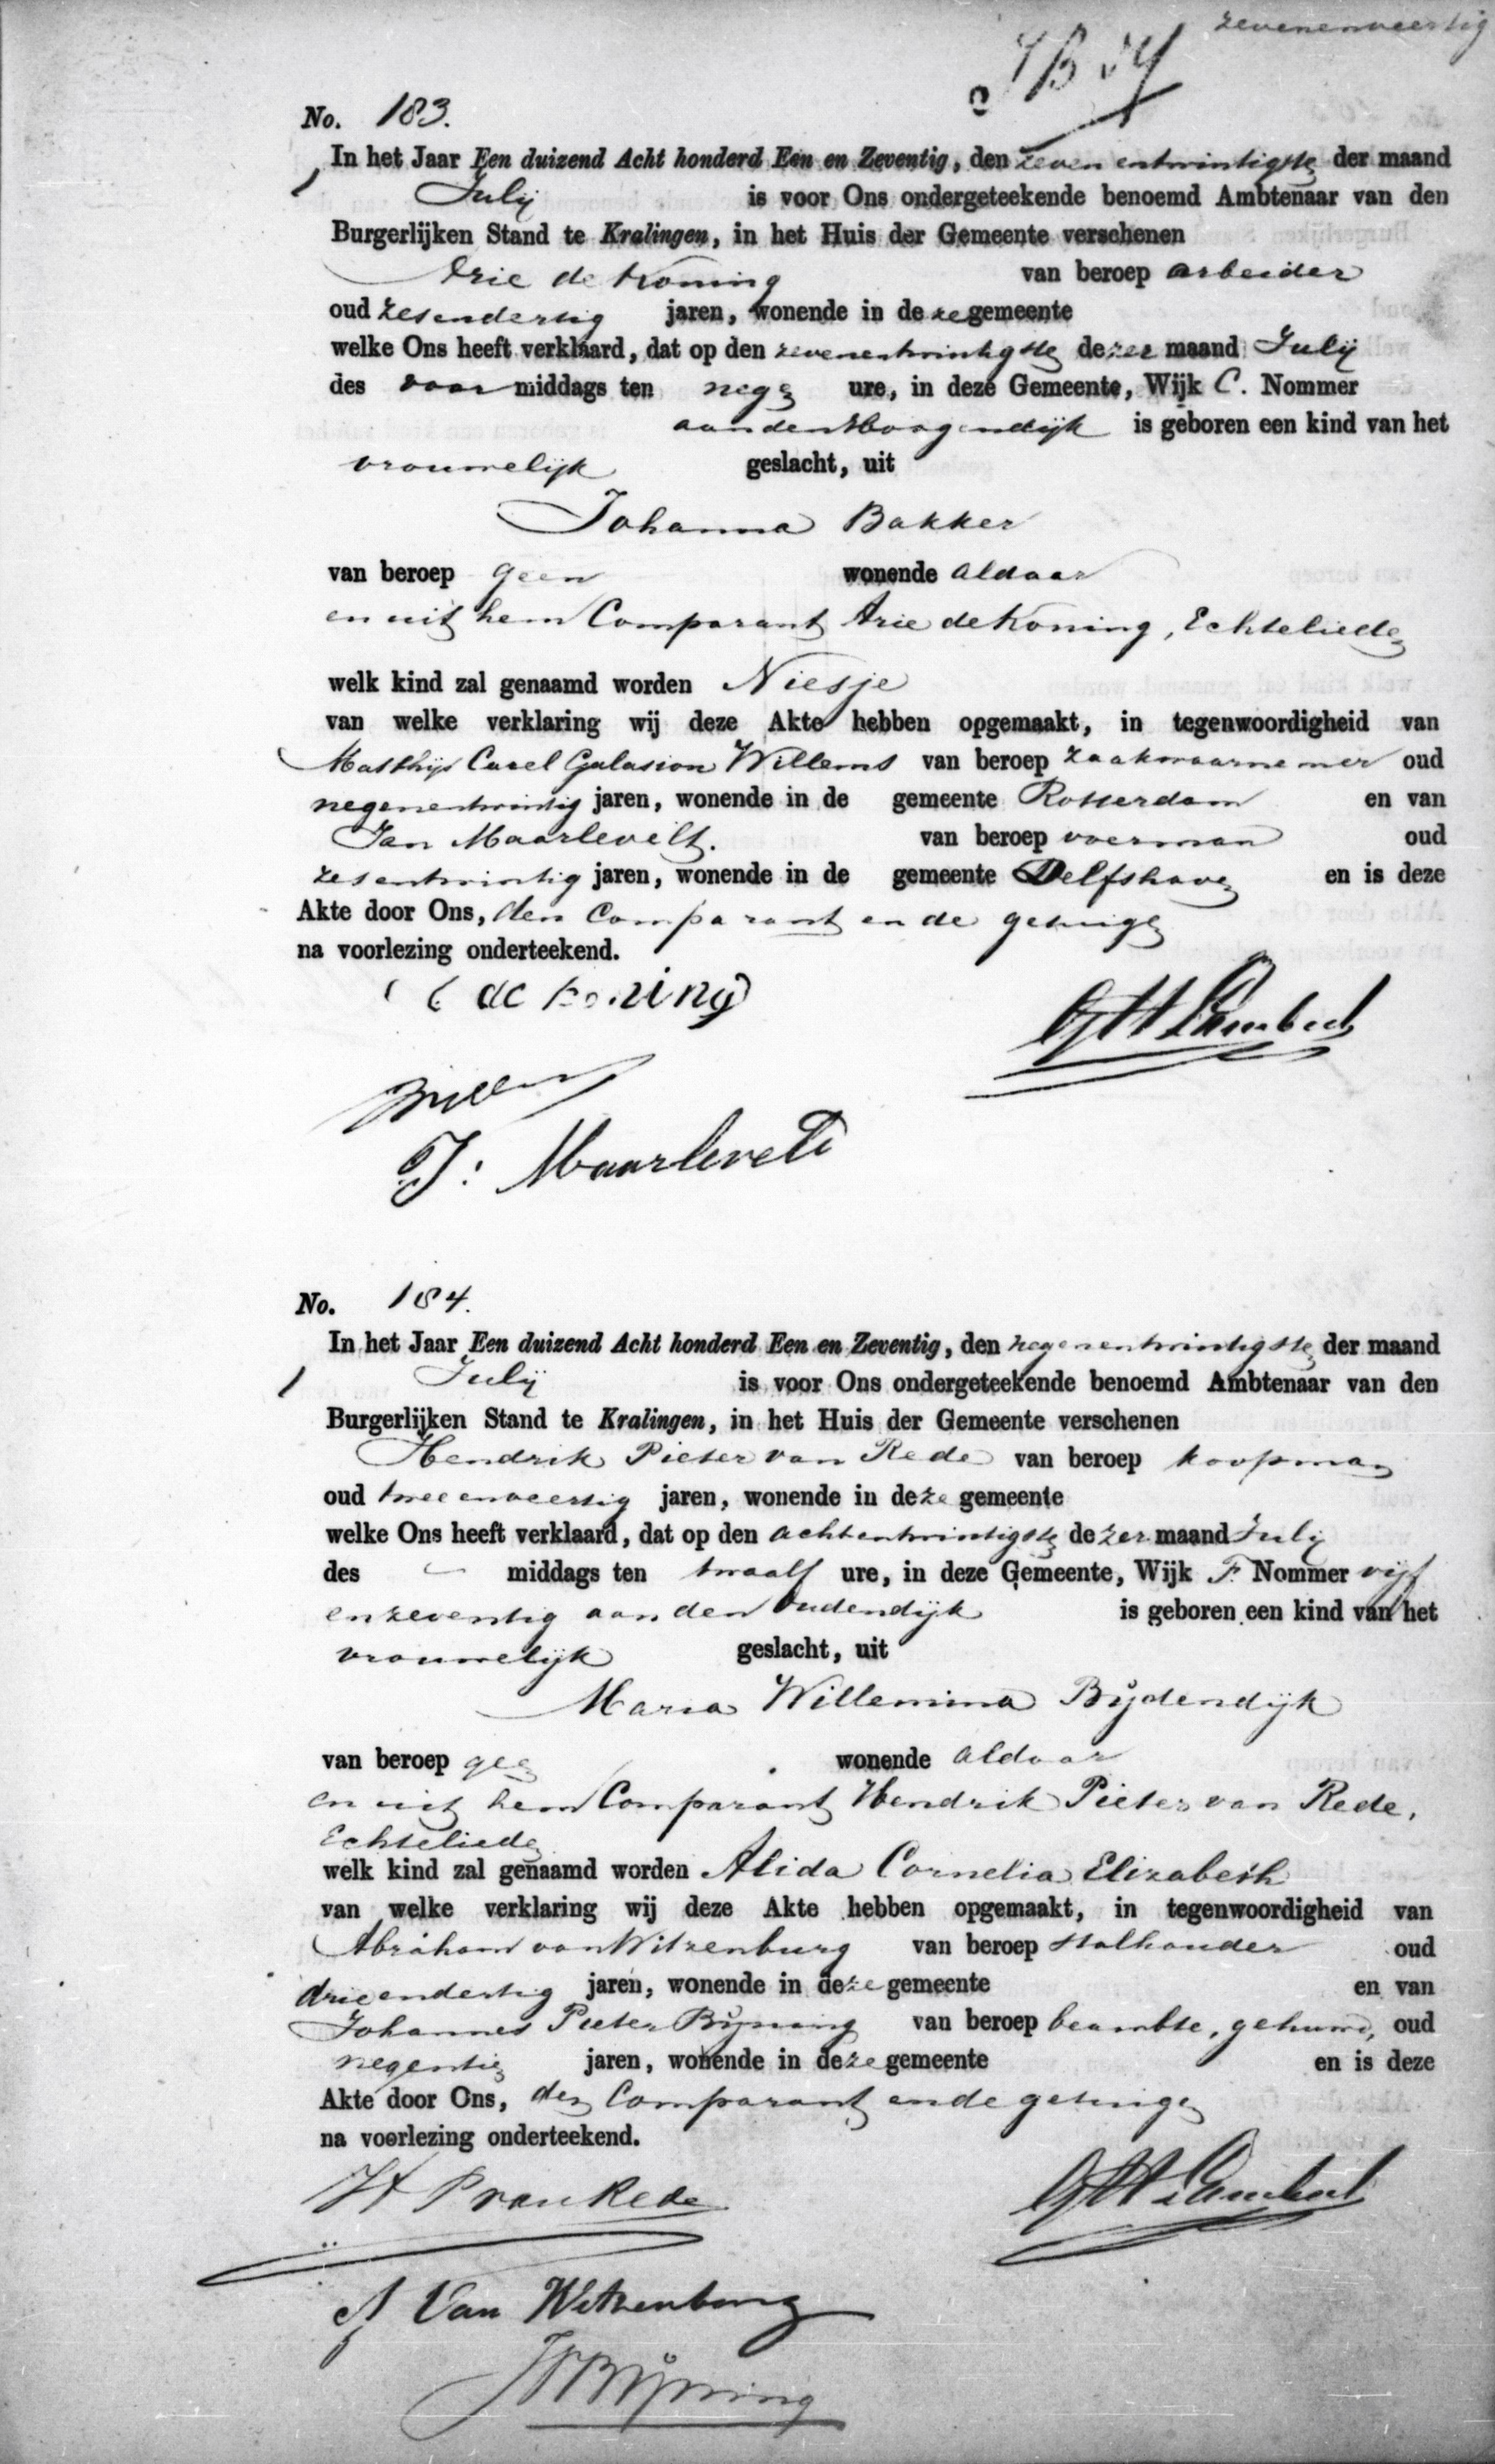 zevenenveertig
No. 183.
In het Jaar Een duizend Acht honderd Een en Zeventig, den zeven entwintigste der maand
July is voor Ons ondergeteekende benoemd Ambtenaar van den
Burgerlijken Stand te Kralingen, in het Huis der Gemeente verschenen
Arie de Koning van beroep arbeider
oud zesendertig jaren, wonende in deze gemeente
welke Ons heeft verklaard, dat op den zevenentwintigste dezer maand July
des voor middags ten negen ure, in deze Gemeente, Wijk C. Nommer
aan den Hoogendijk is geboren een kind van het
vrouwelijk geslacht, uit
Johanna Bakker
van beroep geen wonende aldaar
en uit hem Comparant Arie de Koning, Echtelieden
welk kind zal genaamd worden Niesje
van welke verklaring wij deze Akte hebben opgemaakt, in tegenwoordigheid van
Matthijs Carel Galasion Willems van beroep zaakwaarnemer oud
negenentwintig jaren, wonende in de gemeente Rotterdam en van
Jan Maarlevelt. van beroep voerman oud
zesentwintig jaren, wonende in de gemeente Delfshaven en is deze
Akte door Ons, den Comparant en de getuigen
na voorlezing onderteekend.
de koning
Willems
J: Maarlevelt
No. 184.
In het Jaar Een duizend Acht honderd Een en Zeventig, den negenentwintigste der maand
July is voor Ons ondergeteekende benoemd Ambtenaar van den
Burgerlijken Stand te Kralingen, in het Huis der Gemeente verschenen
Hendrik Pieter van Rede van beroep koopman
oud tweeenveertig jaren, wonende in deze gemeente
welke Ons heeft verklaard, dat op den achtentwintigste dezer maand July
des - middags ten twaalf ure, in deze Gemeente, Wijk F. Nommer vijf
enzeventig aan den Oudendijk is geboren een kind van het
vrouwelijk geslacht, uit
Maria Willemina Bijdendijk
van beroep geen wonende aldaar
en uit hem Comparant Hendrik Pieter van Rede,
Echtelieden
welk kind zal genaamd worden Alida Cornelia Elizabeth
van welke verklaring wij deze Akte hebben opgemaakt, in tegenwoordigheid van
Abraham van Witzenburg van beroep stalhouder oud
drieendertig jaren, wonende in deze gemeente en van
Johannes Pieter Bijning van beroep beambte, oud
negentig jaren, wonende in deze gemeente en is deze
Akte door Ons, den Comparant en de getuigen
na voorlezing onderteekend.
H P van Rede
A Van Witzenburg
JP Bijning